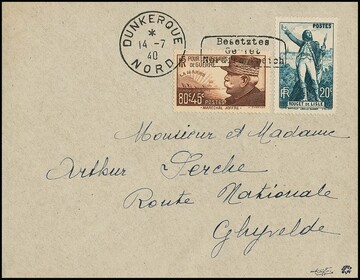 DUNKERQUE
*
14 -7
40
NORD
Besetztes
Gebiet
Nordfrankreich
POUR LES BLESSÉS
DE GUERRE
LA MARNE
80c+45c
RF
POSTES
MARECHAL JOFFRE
POSTES
RF
20c
ROUGET DE LISLE
Monsieur et Madame
Arthur Serche
Route Nationale
Ghyvelde